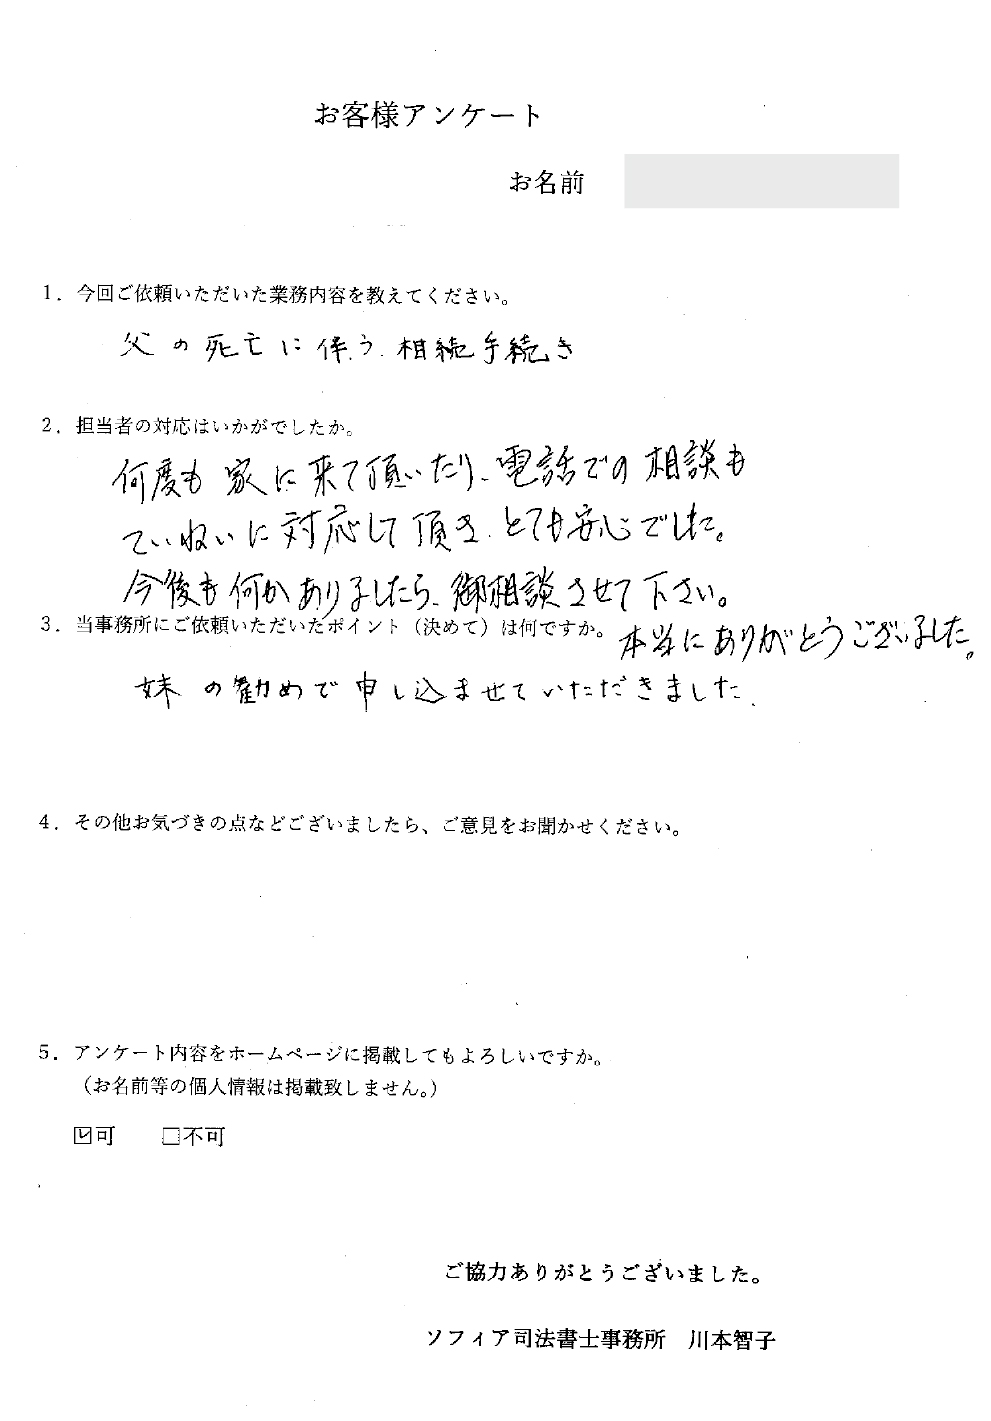 お客様アンケート
お名前
1．今回ご依頼いただいた業務内容を教えてください。
父の死亡に伴う相続手続き
2．担当者の対応はいかがでしたか。
何度も家に来て頂いたり、電話での相談も
ていねいに対応して頂き、とても安心でした。
今後も何かありましたら、御相談させて下さい。
本当にありがとうございました。
3．当事務所にご依頼いただいたポイント（決めて）は何ですか。
妹の勧めで申し込ませていただきました。
4．その他お気づきの点などございましたら、ご意見をお聞かせください。
5．アンケート内容をホームページに掲載してもよろしいですか。
（お名前等の個人情報は掲載致しません。）
☑可　□不可
ご協力ありがとうございました。
ソフィア司法書士事務所　川本智子